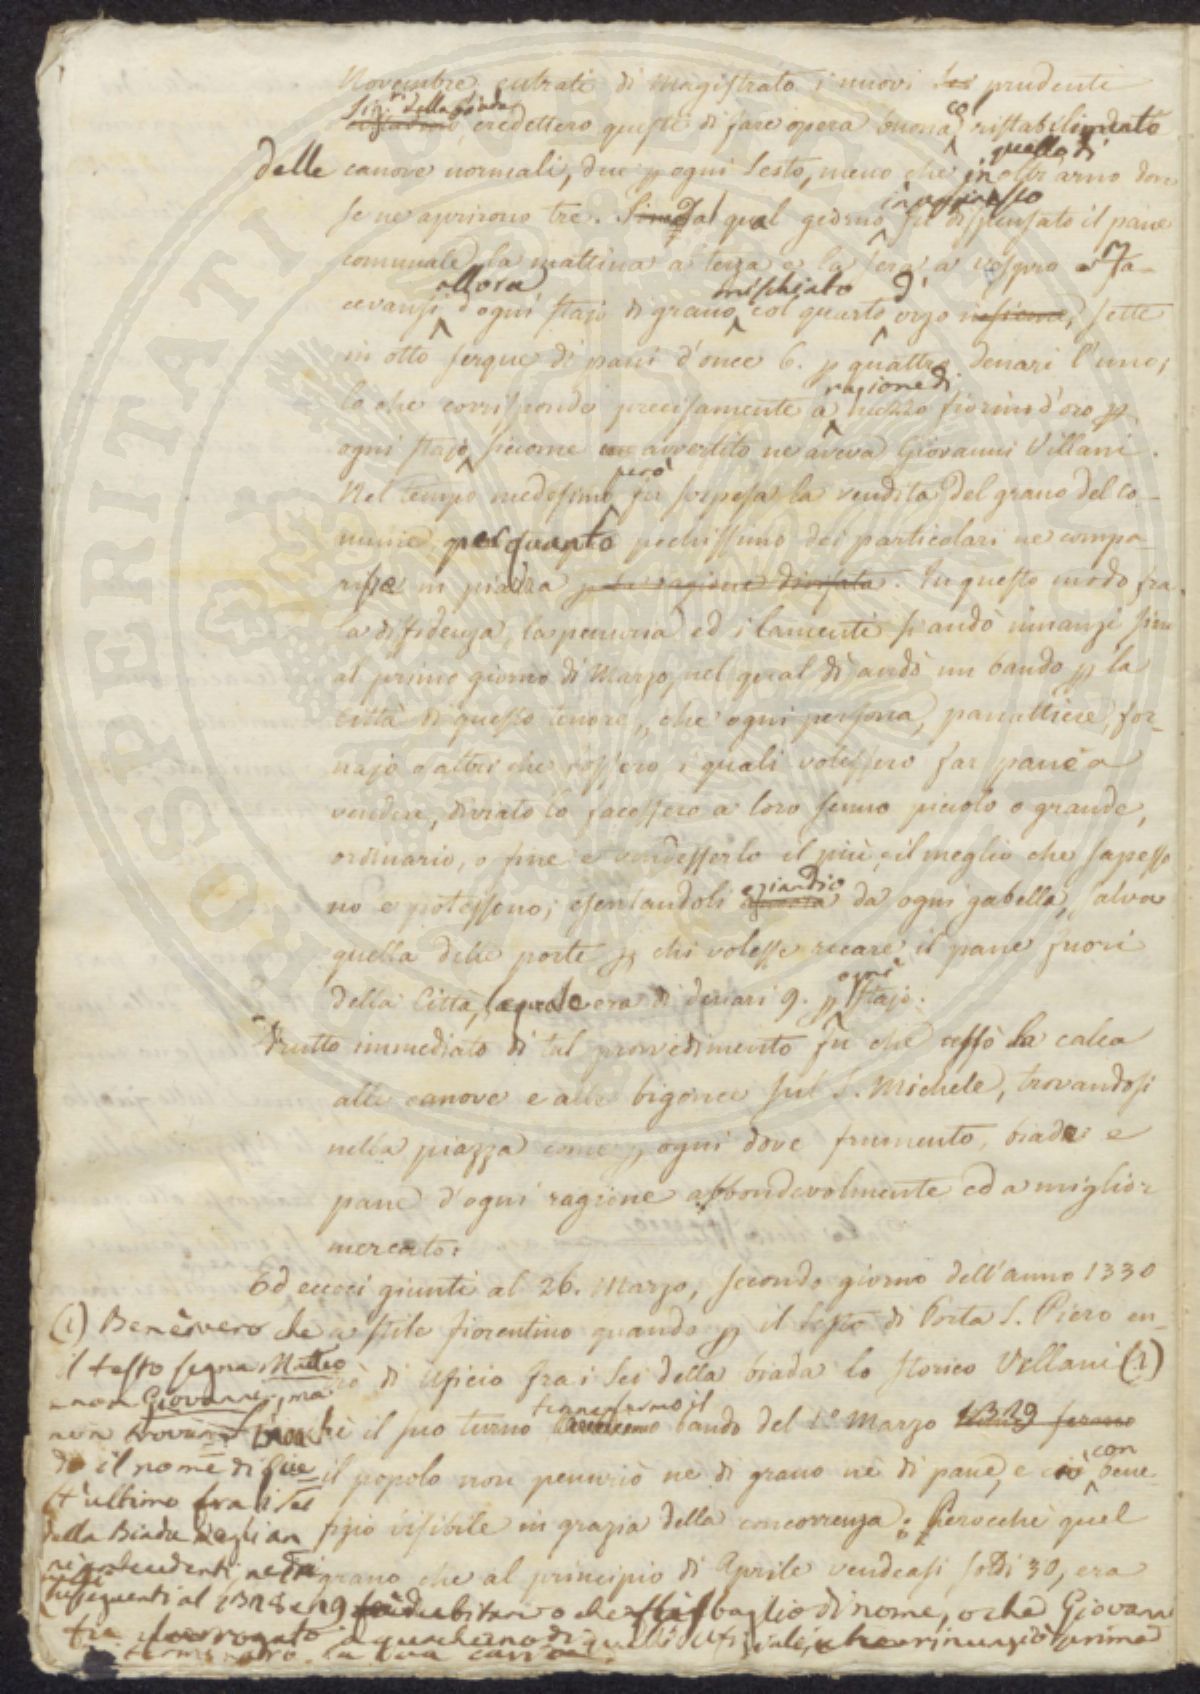 Novembre, entrati di Magistrato i nuovi Sei prudenti
Sig.ri della biada
credettero questi di fare opera buona co ristabilimento
delle canove normali, due p ogni Sesto, meno che in quella di oltr'arno dove
se ne aprirono tre. Dal qual giorno in appresso fu dispensato il pane
comunale la mattina a terza e la sera a vespro e fa-
cevansi allora d'ogni stajo di grano mischiato col quarto d'orzo insieme, sette
in otto serque di pani d'once 6. p quattro denari l'uno;
lo che corrisponde precisamente a ragione di mezzo fiorino d'oro p
ogni stajo, siccome avvertito ne aveva Giovanni Villani.
Nel tempo medesimo però fu sospesa la vendita del grano del co-
mune, per quanto pochissimo dei particolari ne compa-
risse in piazza p la ragione divisata. In questo modo fra
la diffidenza, la penuria ed i lamenti si andò innanzi sino
al primo giorno di Marzo, nel qual dì andò un bando p la
città di questo tenore „ che ogni persona, panattiere, for-
najo o altri che fossero i quali volessero far pane a
vendere, diviato lo facessero a loro senno piccolo o grande,
ordinario, o fine e vendesserlo il più, e il meglio che sapesso
no e potessono; esentandoli eziandio da ogni gabella, salva
quella delle porte p chi volesse recare il pane fuori
della Città, la quale era di denari 9. p ogni stajo.
Frutto immediato di tal provvedimento fu che cessò la calca
alle canove e alle bigonce sul S. Michele, trovandosi
nella piazza come p ogni dove frumento, biade e
pane d'ogni ragione abbondevolmente ed a miglior
mercato:
Ed eccoci giunti al 26. Marzo, secondo giorno dell'anno 1330
a stile fiorentino quando p il Sesto di Porta S. Piero en-
trò di Uficio fra i Sei della biada lo storico Villani (1)
il suo turno bando del 1.o Marzo 1329
il popolo non penuriò nè di grano nè di pane, e ciò con bene-
fizio visibile in grazia della concorrenza; Perocchè quel
grano che al principio di Aprile vendeasi soldi 30, era
(1) Ben è vero che
il testo segna Matteo
e non Giovanni, ma
non trovan
do il nome di que
st'ultimo fra i Sei
della Biada negli an
ni antecedenti nè
susseguenti al 1328 e 29 dubitare o che sbaglio di nome, o che Giovan
ni fu surrogato a qualcheduno di quelli Ufiziali, che rinunziò prima